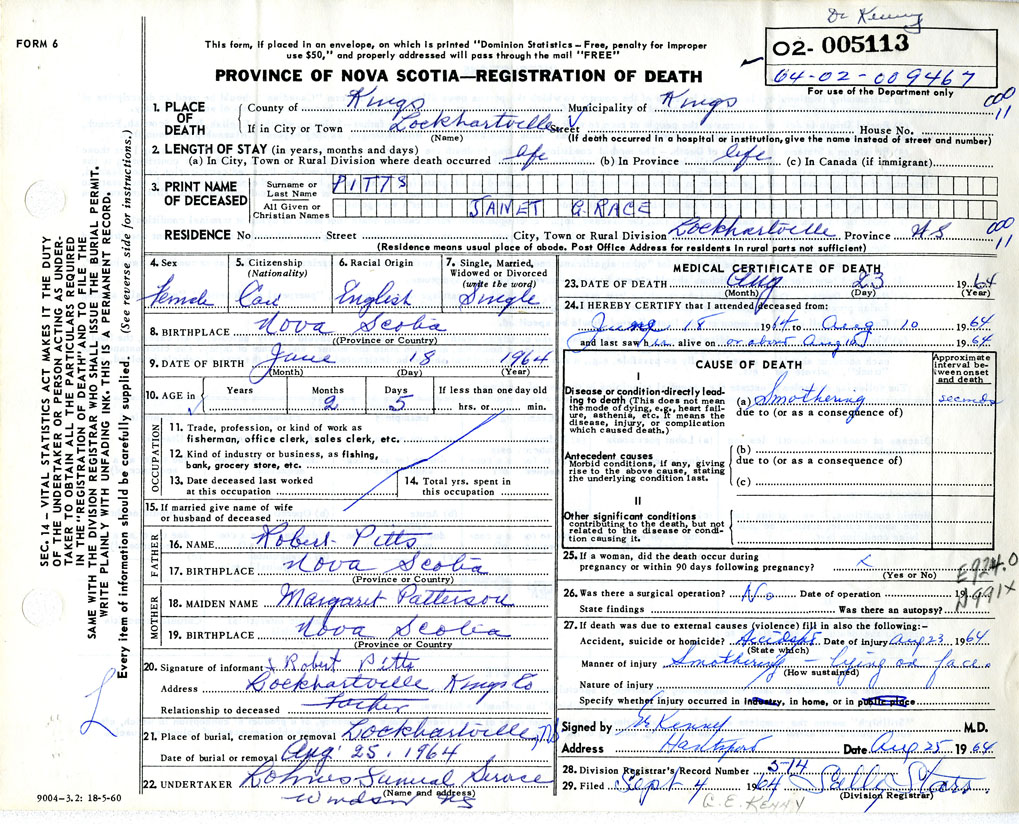 Dr Kenny
FORM 6
This form, if placed in an envelope, on which is printed "Dominion Statistics – Free, penalty for improper
use $50," and properly addressed will pass through the mail "FREE"
02- 005113
64-02-009467
For use of the Department only
PROVINCE OF NOVA SCOTIA—REGISTRATION OF DEATH
1. PLACE OF DEATH
County of Kings Municipality of Kings
000
11
If in City or Town Lockhartville Street House No.
(Name) (If death occurred in a hospital or institution, give the name instead of street and number)
2. LENGTH OF STAY (in years, months and days)
(a) In City, Town or Rural Division where death occurred life (b) In Province life (c) In Canada (if immigrant)
3. PRINT NAME OF DECEASED
Surname or Last Name PITTS
All Given or Christian Names JANET GRACE
RESIDENCE No Street City, Town or Rural Division Lockhartville Province NS
000
11
(Residence means usual place of abode. Post Office Address for residents in rural parts not sufficient)
4. Sex Female
5. Citizenship (Nationality) Can
6. Racial Origin English
7. Single, Married, Widowed or Divorced (write the word) Single
8. BIRTHPLACE Nova Scotia
(Province or Country)
9. DATE OF BIRTH June 18 1964
(Month) (Day) (Year)
10. AGE in Years Months 2 Days 5 If less than one day old hrs. or min.
OCCUPATION
11. Trade, profession, or kind of work as
fisherman, office clerk, sales clerk, etc.
12. Kind of industry or business, as fishing,
bank, grocery store, etc.
13. Date deceased last worked
at this occupation
14. Total yrs. spent in
this occupation
15. If married give name of wife
or husband of deceased
FATHER
16. NAME Robert Pitts
17. BIRTHPLACE Nova Scotia
(Province or Country)
MOTHER
18. MAIDEN NAME Margaret Patterson
19. BIRTHPLACE Nova Scotia
(Province or Country)
20. Signature of informant Robert Pitts
Address Lockhartville Kings Co
Relationship to deceased Father
21. Place of burial, cremation or removal Lockhartville, NS
Date of burial or removal Aug. 25, 1964
22. UNDERTAKER Funeral Service
(Name and address)
Windsor NS
MEDICAL CERTIFICATE OF DEATH
23. DATE OF DEATH Aug 23 1964
(Month) (Day) (Year)
24. I HEREBY CERTIFY that I attended deceased from:
June 18 1964 to Aug 10 1964
and last saw h alive on or about Aug 10 1964
CAUSE OF DEATH
Approximate interval between onset and death
I
Disease or condition directly leading to death (This does not mean the mode of dying, e.g., heart failure, asthenia, etc. It means the disease, injury, or complication which caused death.)
(a) Smothering seconds
due to (or as a consequence of)
Antecedent causes
Morbid conditions, if any, giving rise to the above cause, stating the underlying condition last.
(b)
due to (or as a consequence of)
(c)
II
Other significant conditions
contributing to the death, but not related to the disease or condition causing it.
25. If a woman, did the death occur during
pregnancy or within 90 days following pregnancy?
(Yes or No)
E924.0
N991X
26. Was there a surgical operation? No Date of operation 19
State findings Was there an autopsy?
27. If death was due to external causes (violence) fill in also the following:-
Accident, suicide or homicide? Accident Date of injury Aug 23 1964
(State which)
Manner of injury Smothering – lying on face.
(How sustained)
Nature of injury
Specify whether injury occurred in industry, in home, or in public place
Signed by Kenny M.D.
Address Hantsport Date Aug 25 1964
28. Division Registrar's Record Number 514
29. Filed Sept 4 1964
(Division Registrar)
C. E. KENNY
SEC. 14 – VITAL STATISTICS ACT MAKES IT THE DUTY
OF THE UNDERTAKER OR PERSON ACTING AS UNDER-
TAKER TO OBTAIN ALL THE PARTICULARS REQUIRED
IN THE "REGISTRATION OF DEATH" AND TO FILE THE
SAME WITH THE DIVISION REGISTRAR WHO SHALL ISSUE THE BURIAL PERMIT.
WRITE PLAINLY WITH UNFADING INK. THIS IS A PERMANENT RECORD.
Every item of information should be carefully supplied. (See reverse side for instructions.)
9004-3.2: 18-5-60